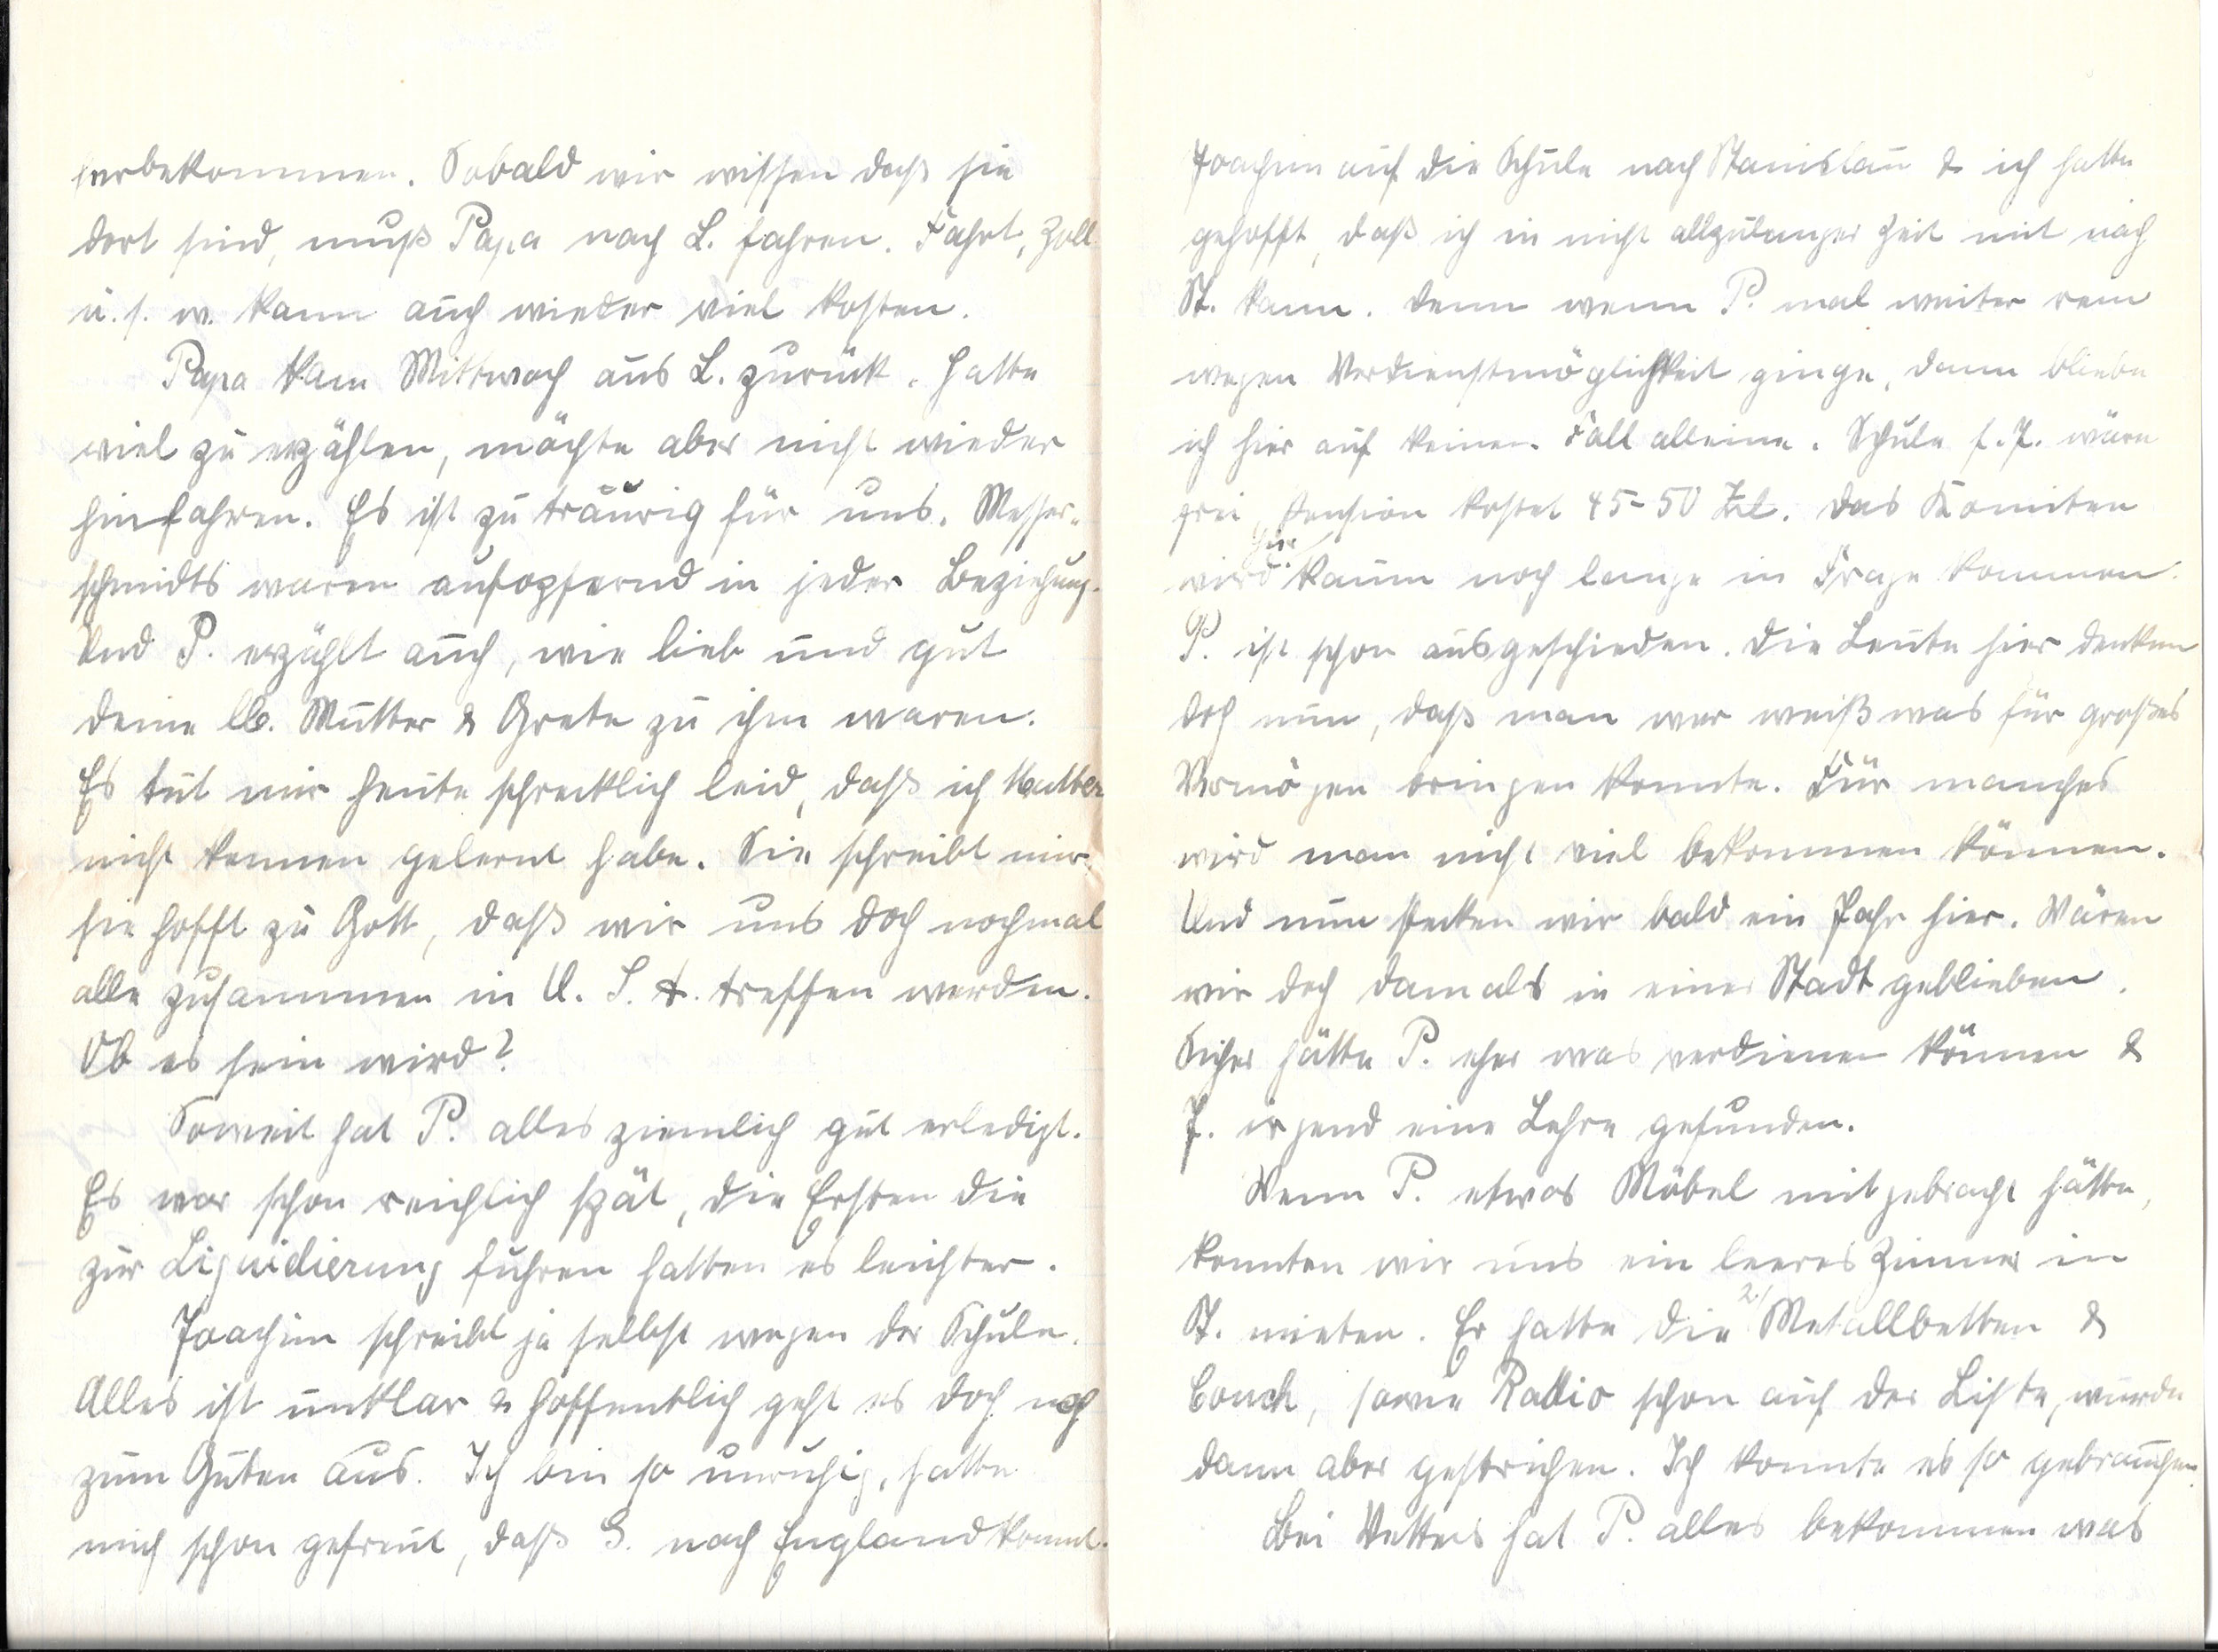 herbekommen. Sobald wir wissen daß sie
dort sind, muß Papa nach L. fahren. Fahrt, Zoll
u. s. w. kann auch wieder viel kosten.
Papa kam Mittwoch aus L. zurück. Hatte
viel zu erzählen, möchte aber nicht wieder
hinfahren. Es ist zu traurig für uns. Messer-
schmidts waren aufopfernd in jeder Beziehung.
Und P. erzählt auch, wie lieb und gut
deine lb. Mutter & Grete zu ihm waren.
Es tut mir heute schrecklich leid, daß ich Mutter
nicht kennen gelernt habe. Sie schreibt mir
sie hofft zu Gott, daß wir uns doch nochmal
alle zusammen in U. S. A. treffen werden.
Ob es sein wird?
Soweit hat P. alles ziemlich gut erledigt.
Es war schon reichlich spät, die Ersten die
zur Liquidierung fuhren hatten es leichter.
Joachim schreibt ja selbst wegen der Schule.
Alles ist unklar & hoffentlich geht es doch noch
zum Guten aus. Ich bin so unruhig, hatte
mich schon gefreut, daß G. nach England kommt.
Joachim auf die Schule nach Stanislau & ich hatte
gehofft, daß ich in nicht allzulanger Zeit mit nach
St. kann. Denn wenn P. mal weiter rein
wegen Verdienstmöglichkeit ginge, dann bliebe
ich hier auf keinen Fall alleine. Schule f. J. wäre
frei, Pension kostet 45-50 Zl. Das Komitee
wird hier kaum noch lange in Frage kommen.
P. ist schon ausgeschieden. Die Leute hier denken
doch nun, daß man wer weiß was für großes
Vermögen bringen konnte. Für manches
wird man nicht viel bekommen können.
Und nun stecken wir bald ein Jahr hier. Wären
wir doch damals in einer Stadt geblieben.
Sicher hätte P. eher was verdienen können &
J. irgend eine Lehre gefunden.
Wenn P. etwas Möbel mitgebracht hätte,
konnten wir uns ein leeres Zimmer in
St. mieten. Er hatte die 2 Metallbetten &
Couch, sowie Radio schon auf der Liste, wurde
dann aber gestrichen. Ich konnte es so gebrauchen.
Bei Vetters hat P. alles bekommen was